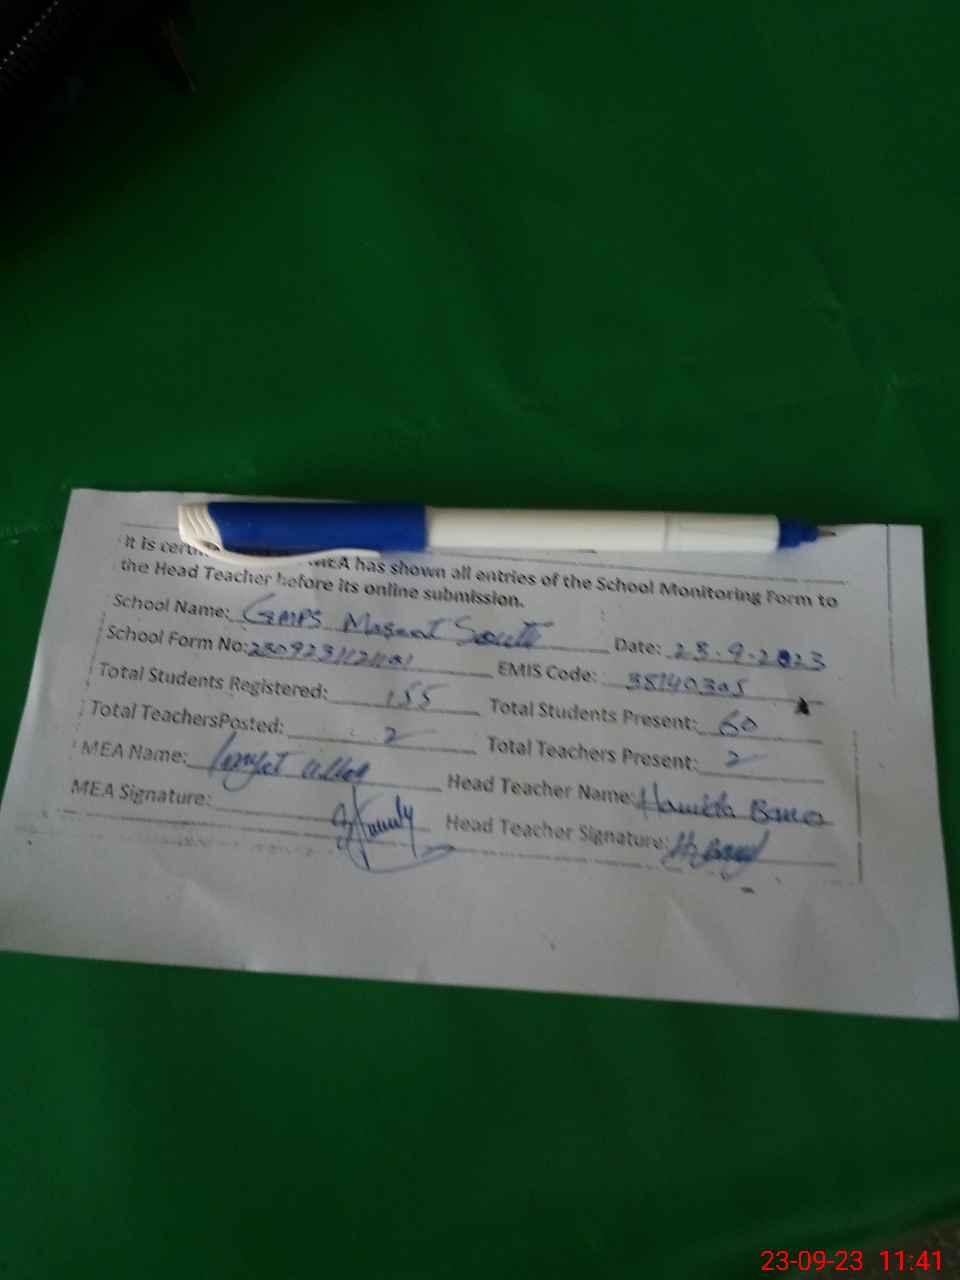 It is has shown all entries of the School Monitoring Form to
the Head Teacher before its online submission.
School Name: GMPS Date: 23.9.2023
School Form No: EMIS Code: 38140305
Total Students Registered: 155 Total Students Present: 60
Total TeachersPosted: 2 Total Teachers Present: 2
MEA Name: Head Teacher Name: Hamida Bano
MEA Signature: Head Teacher Signature:
23-09-23 11:41